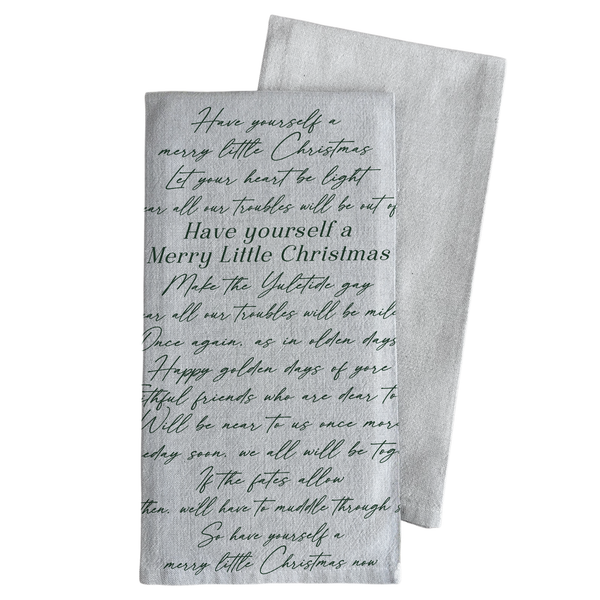 Have yourself a
merry little Christmas
Let your heart be light
ear all our troubles will be out of
Have yourself a
Merry Little Christmas
Make the Yuletide gay
ear all our troubles will be mile
Once again, as in olden days
Happy golden days of yore
ithful friends who are dear to
Will be near to us once more
eday soon, we all will be tog
If the fates allow
then, we'll have to muddle through s
So have yourself a
merry little Christmas now